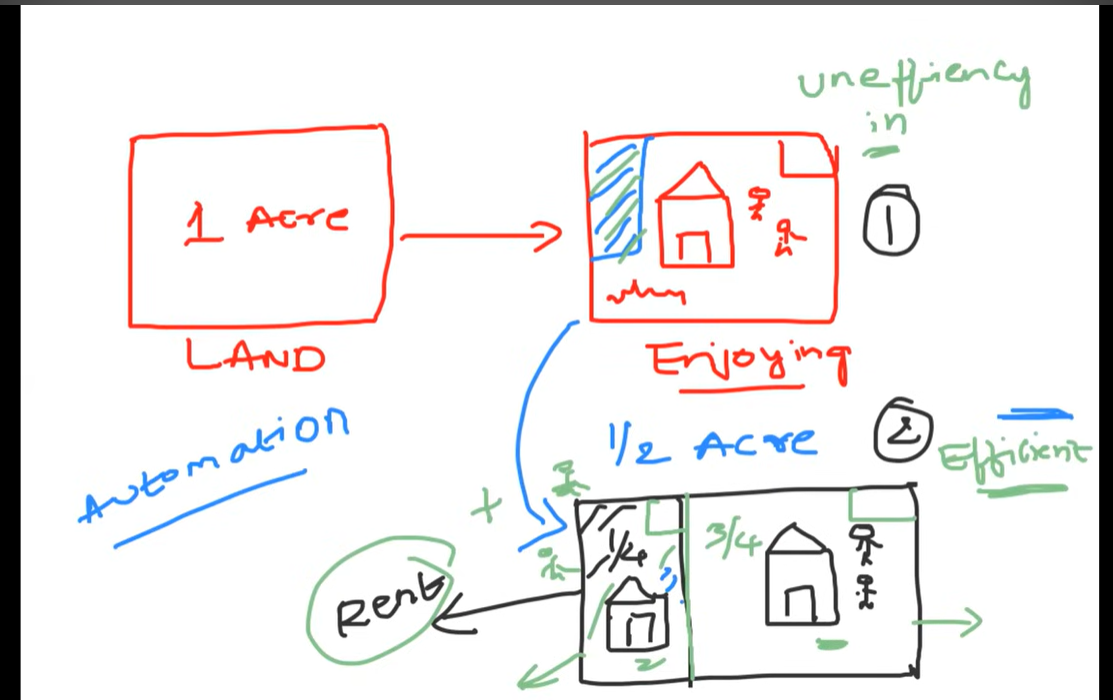 uneffiency
in
1 Acre
1
LAND
Enjoying
Automation
1/2 Acre
2
Efficient
+
1/4
3/4
Rent